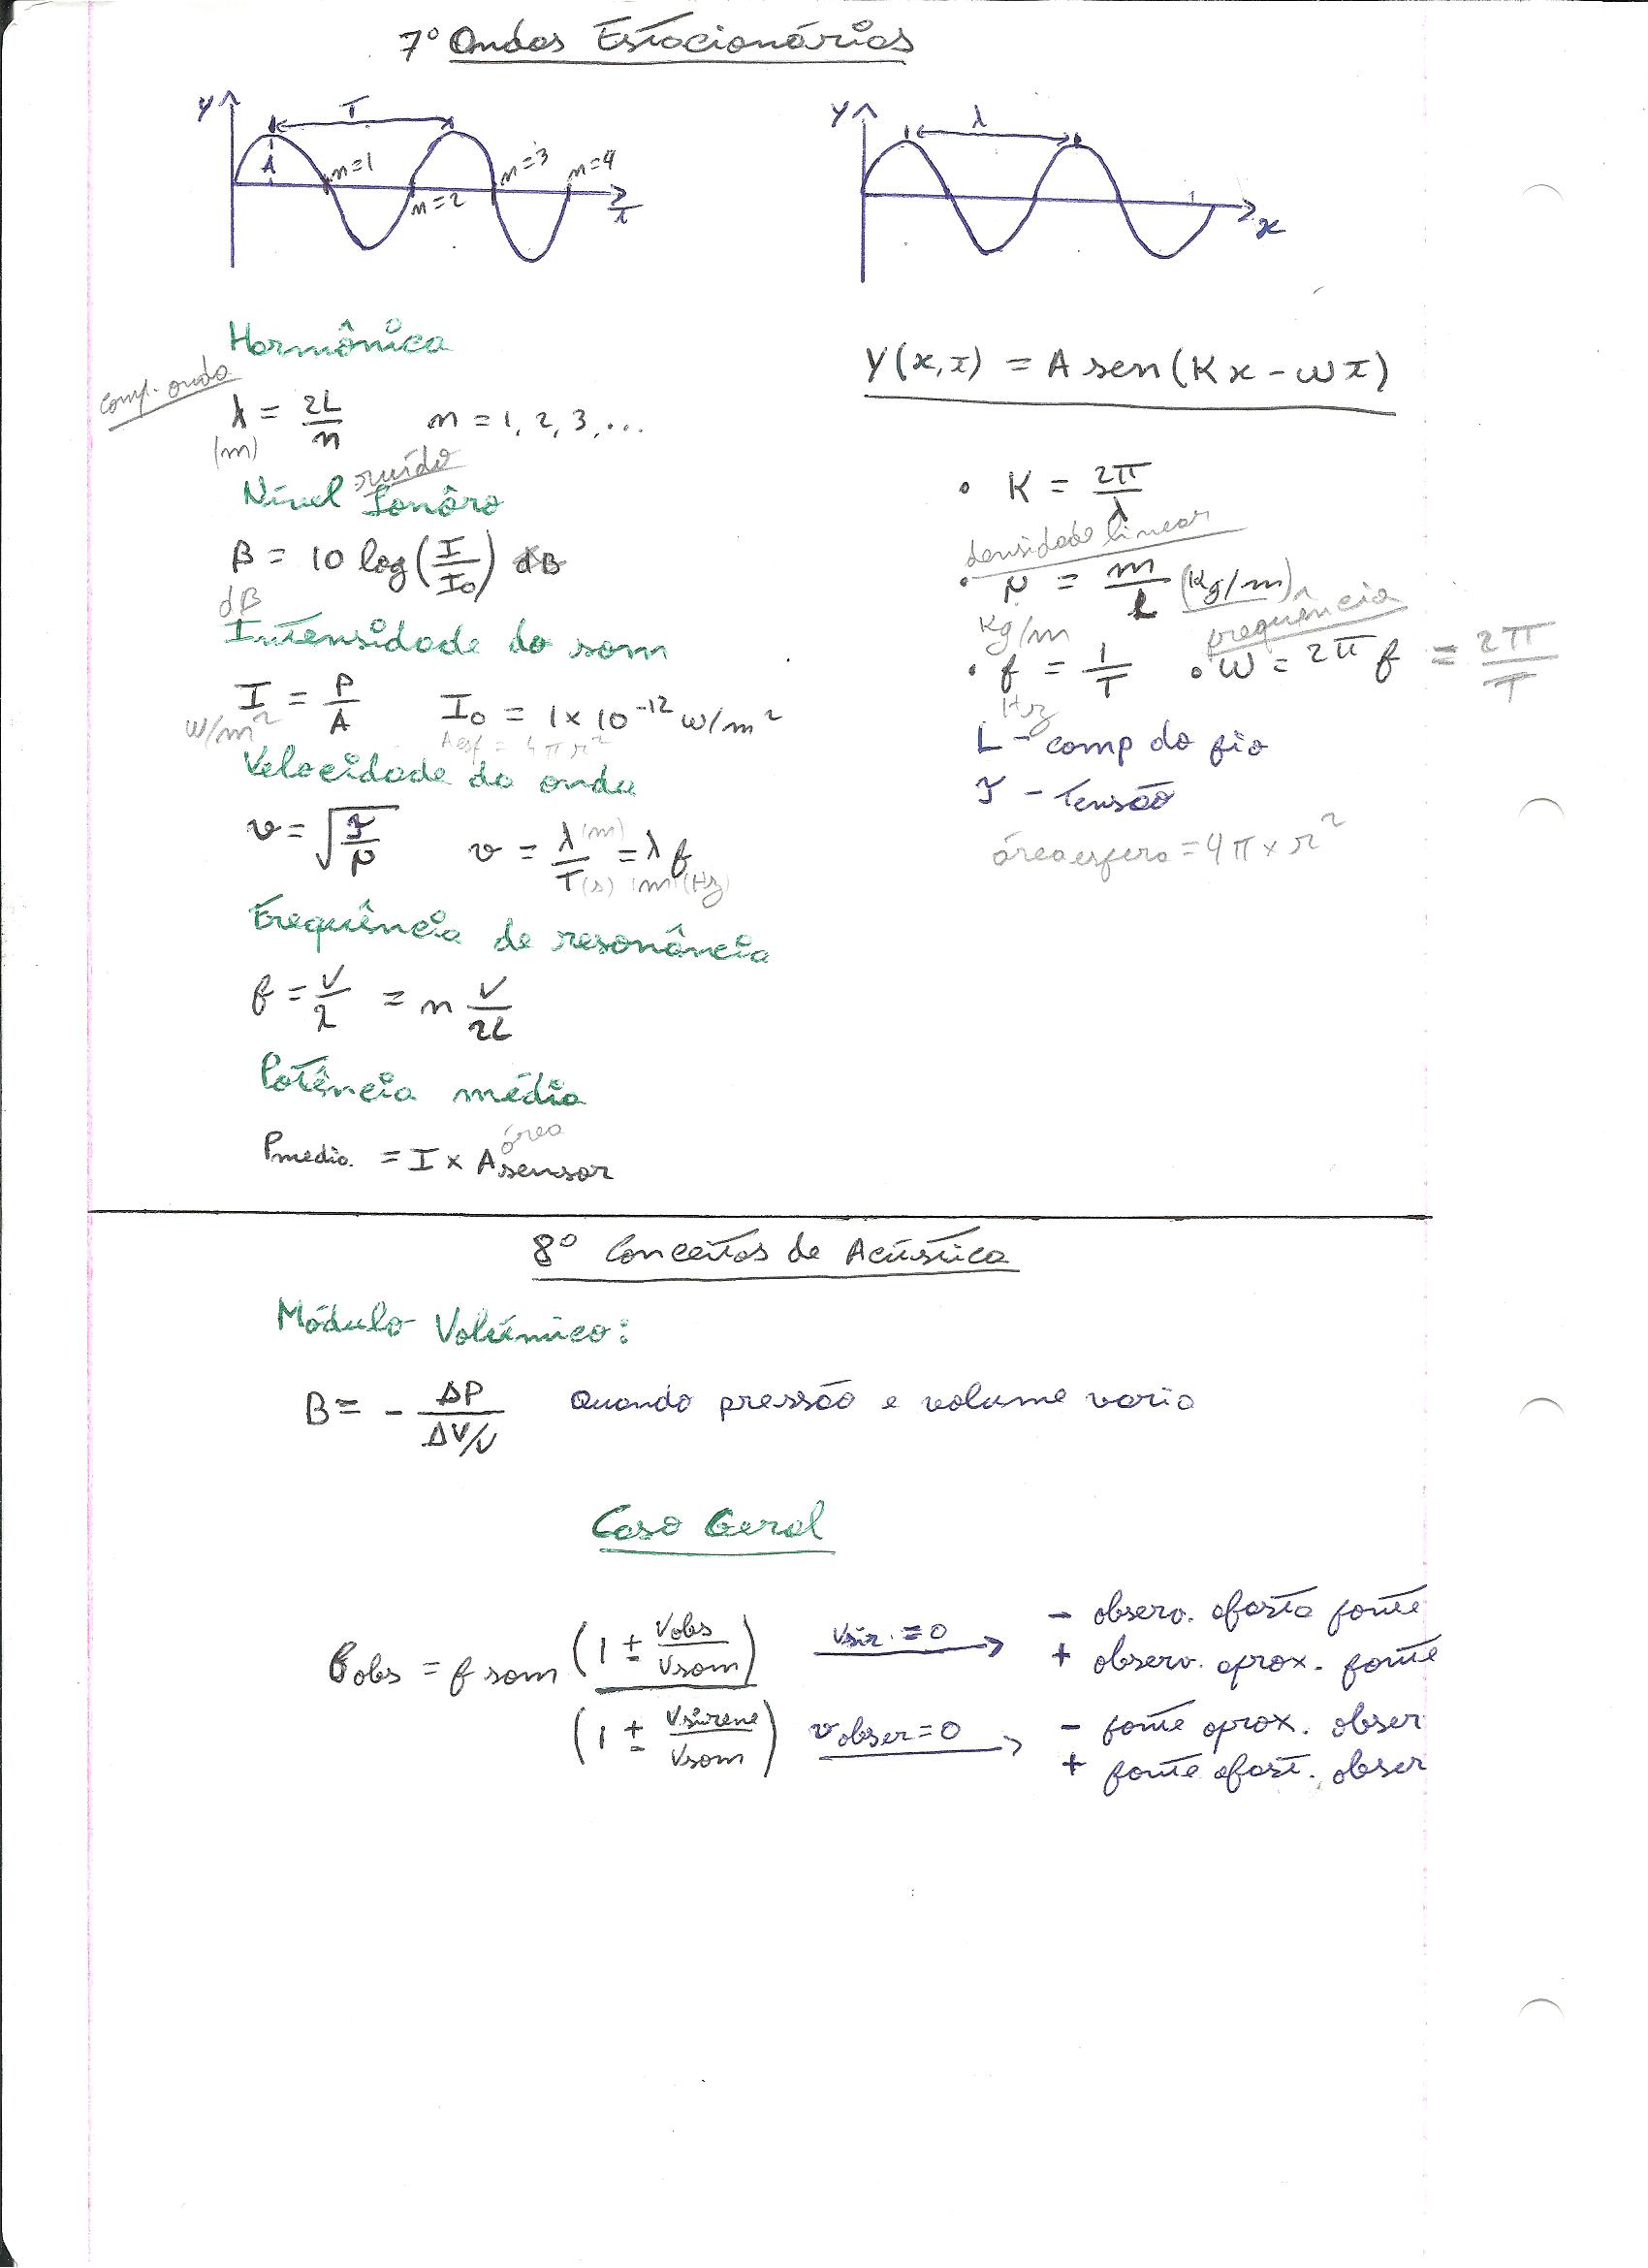 7º Ondas Estacionárias
y T A n=1 n=2 n=3 n=4 t
y λ x
Harmônica
comp. onda
λ = 2L/n n = 1, 2, 3, ...
(m)
ruído
Nível Sonôro
β = 10 log(I/I0) dB
dB
Intensidade do som
I = P/A I0 = 1 x 10^-12 w/m²
W/m² Aesf = 4πr²
Velocidade da onda
v = √(F/μ) v = λ(m)/T(s) = λ f
(m) (Hz)
Frequência de resonância
f = v/λ = n v/2L
Potência média
área
Pmedia. = I x A sensor
y(x,t) = A sen(Kx - wt)
• K = 2π/λ
densidade linear
• μ = m/L (Kg/m)
Kg/m frequência
• f = 1/T • w = 2π f = 2π/T
Hz
L - comp do fio
F - Tensão
área esfera = 4π x r²
8º Conceitos de Acústica
Módulo Volúmico:
B = - ΔP/ΔV/V Quando pressão e volume varia
Caso Geral
fobs = f som (1 ± vobs/vsom) / (1 ± vsirene/vsom)
vsir. = 0 - observ. afasta fonte
+ observ. aprox. fonte
v obser = 0 - fonte aprox. obser
+ fonte afast. obser